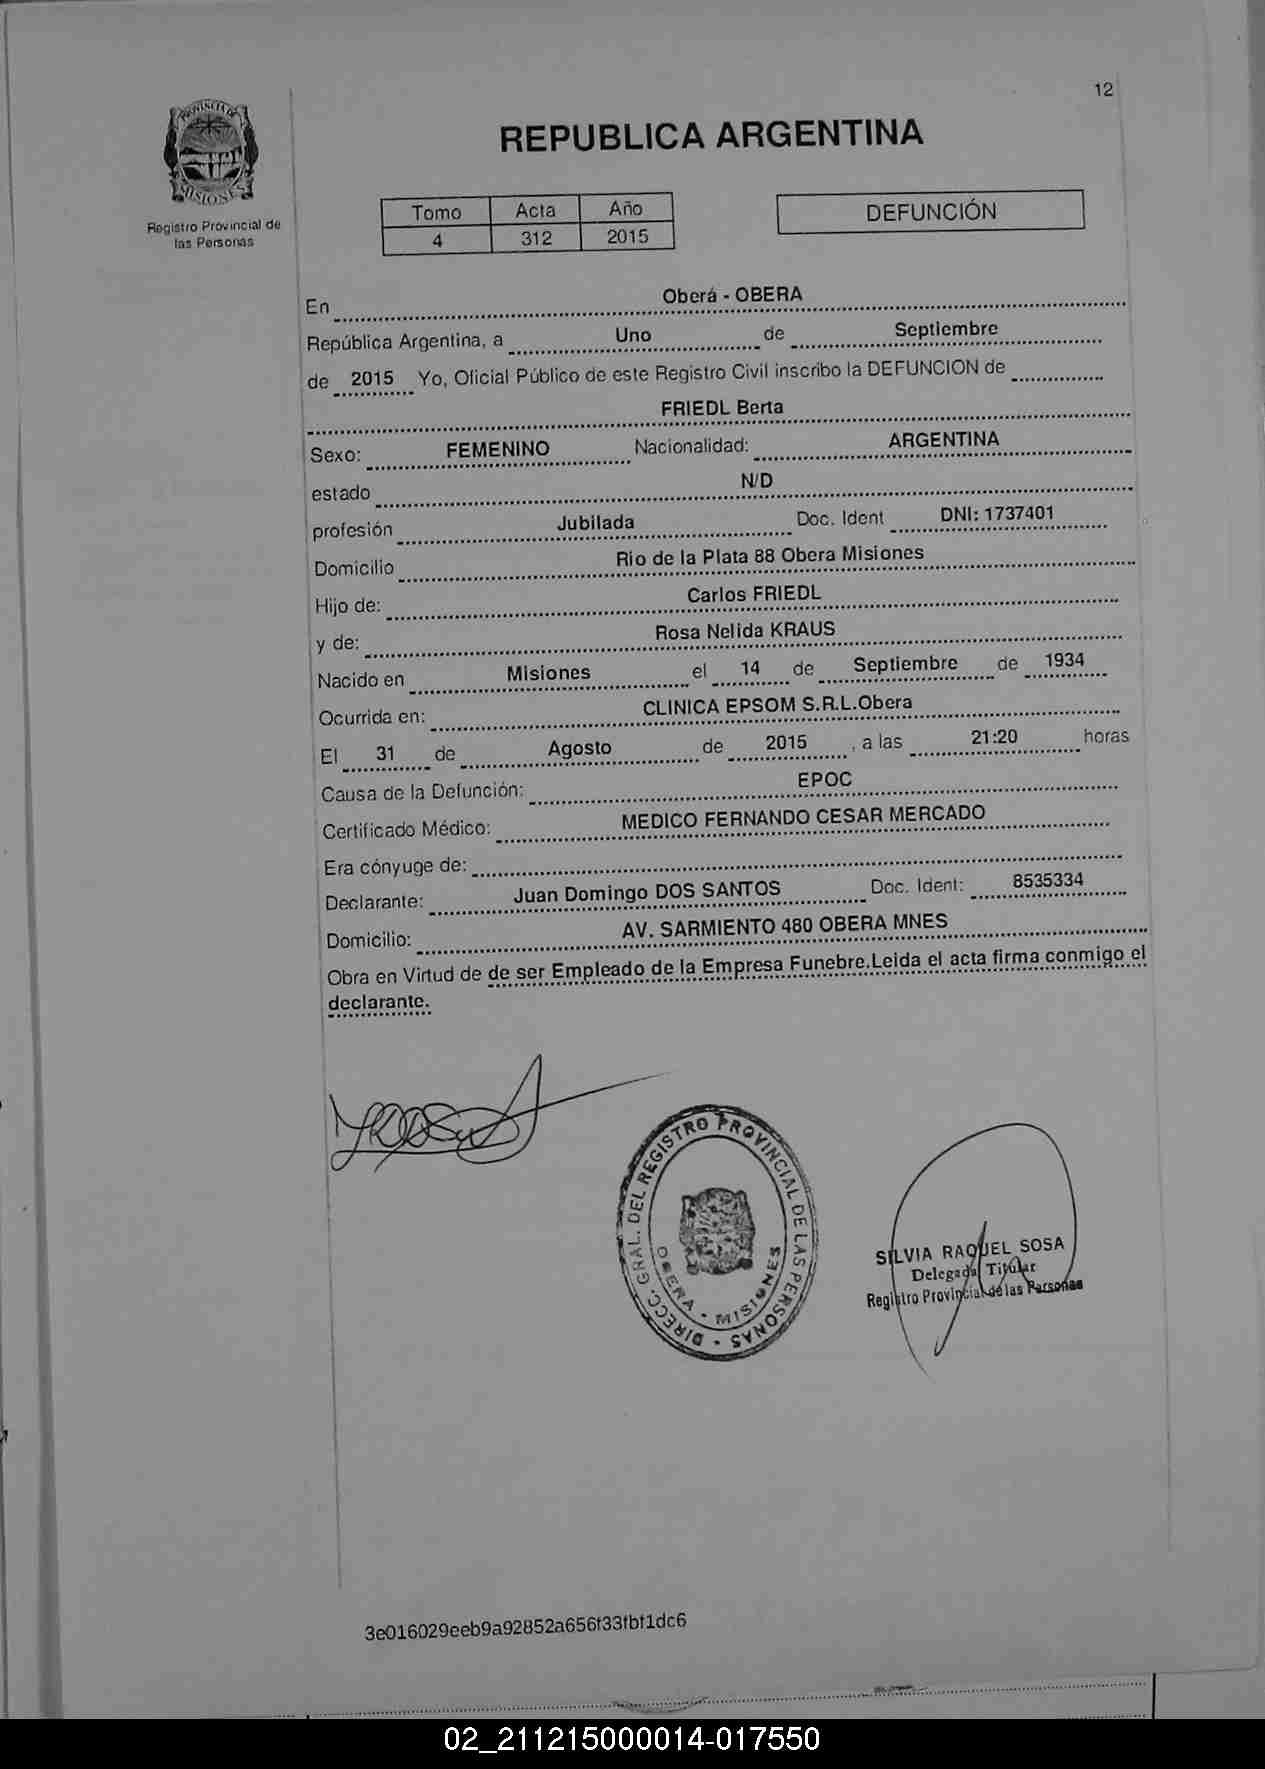 12
PROVINCIA DE
MISIONES
Registro Provincial de
las Personas
REPUBLICA ARGENTINA
Tomo Acta Año
4 312 2015
DEFUNCIÓN
En Oberá - OBERA
República Argentina, a Uno de Septiembre
de 2015 Yo, Oficial Público de este Registro Civil inscribo la DEFUNCION de
FRIEDL Berta
Sexo: FEMENINO Nacionalidad: ARGENTINA
estado N/D
profesión Jubilada Doc. Ident DNI: 1737401
Domicilio Rio de la Plata 88 Obera Misiones
Hijo de: Carlos FRIEDL
y de: Rosa Nelida KRAUS
Nacido en Misiones el 14 de Septiembre de 1934
Ocurrida en: CLINICA EPSOM S.R.L.Obera
El 31 de Agosto de 2015 , a las 21:20 horas
Causa de la Defunción: EPOC
Certificado Médico: MEDICO FERNANDO CESAR MERCADO
Era cónyuge de:
Declarante: Juan Domingo DOS SANTOS Doc. Ident: 8535334
Domicilio: AV. SARMIENTO 480 OBERA MNES
Obra en Virtud de de ser Empleado de la Empresa Funebre.Leida el acta firma conmigo el
declarante.
DIRECC. GRAL. DEL REGISTRO PROVINCIAL DE LAS PERSONAS
OBERA - MISIONES
SILVIA RAQUEL SOSA
Delegada Titular
Registro Provincial de las Personas
3e016029eeb9a92852a656f33fbf1dc6
02_211215000014-017550